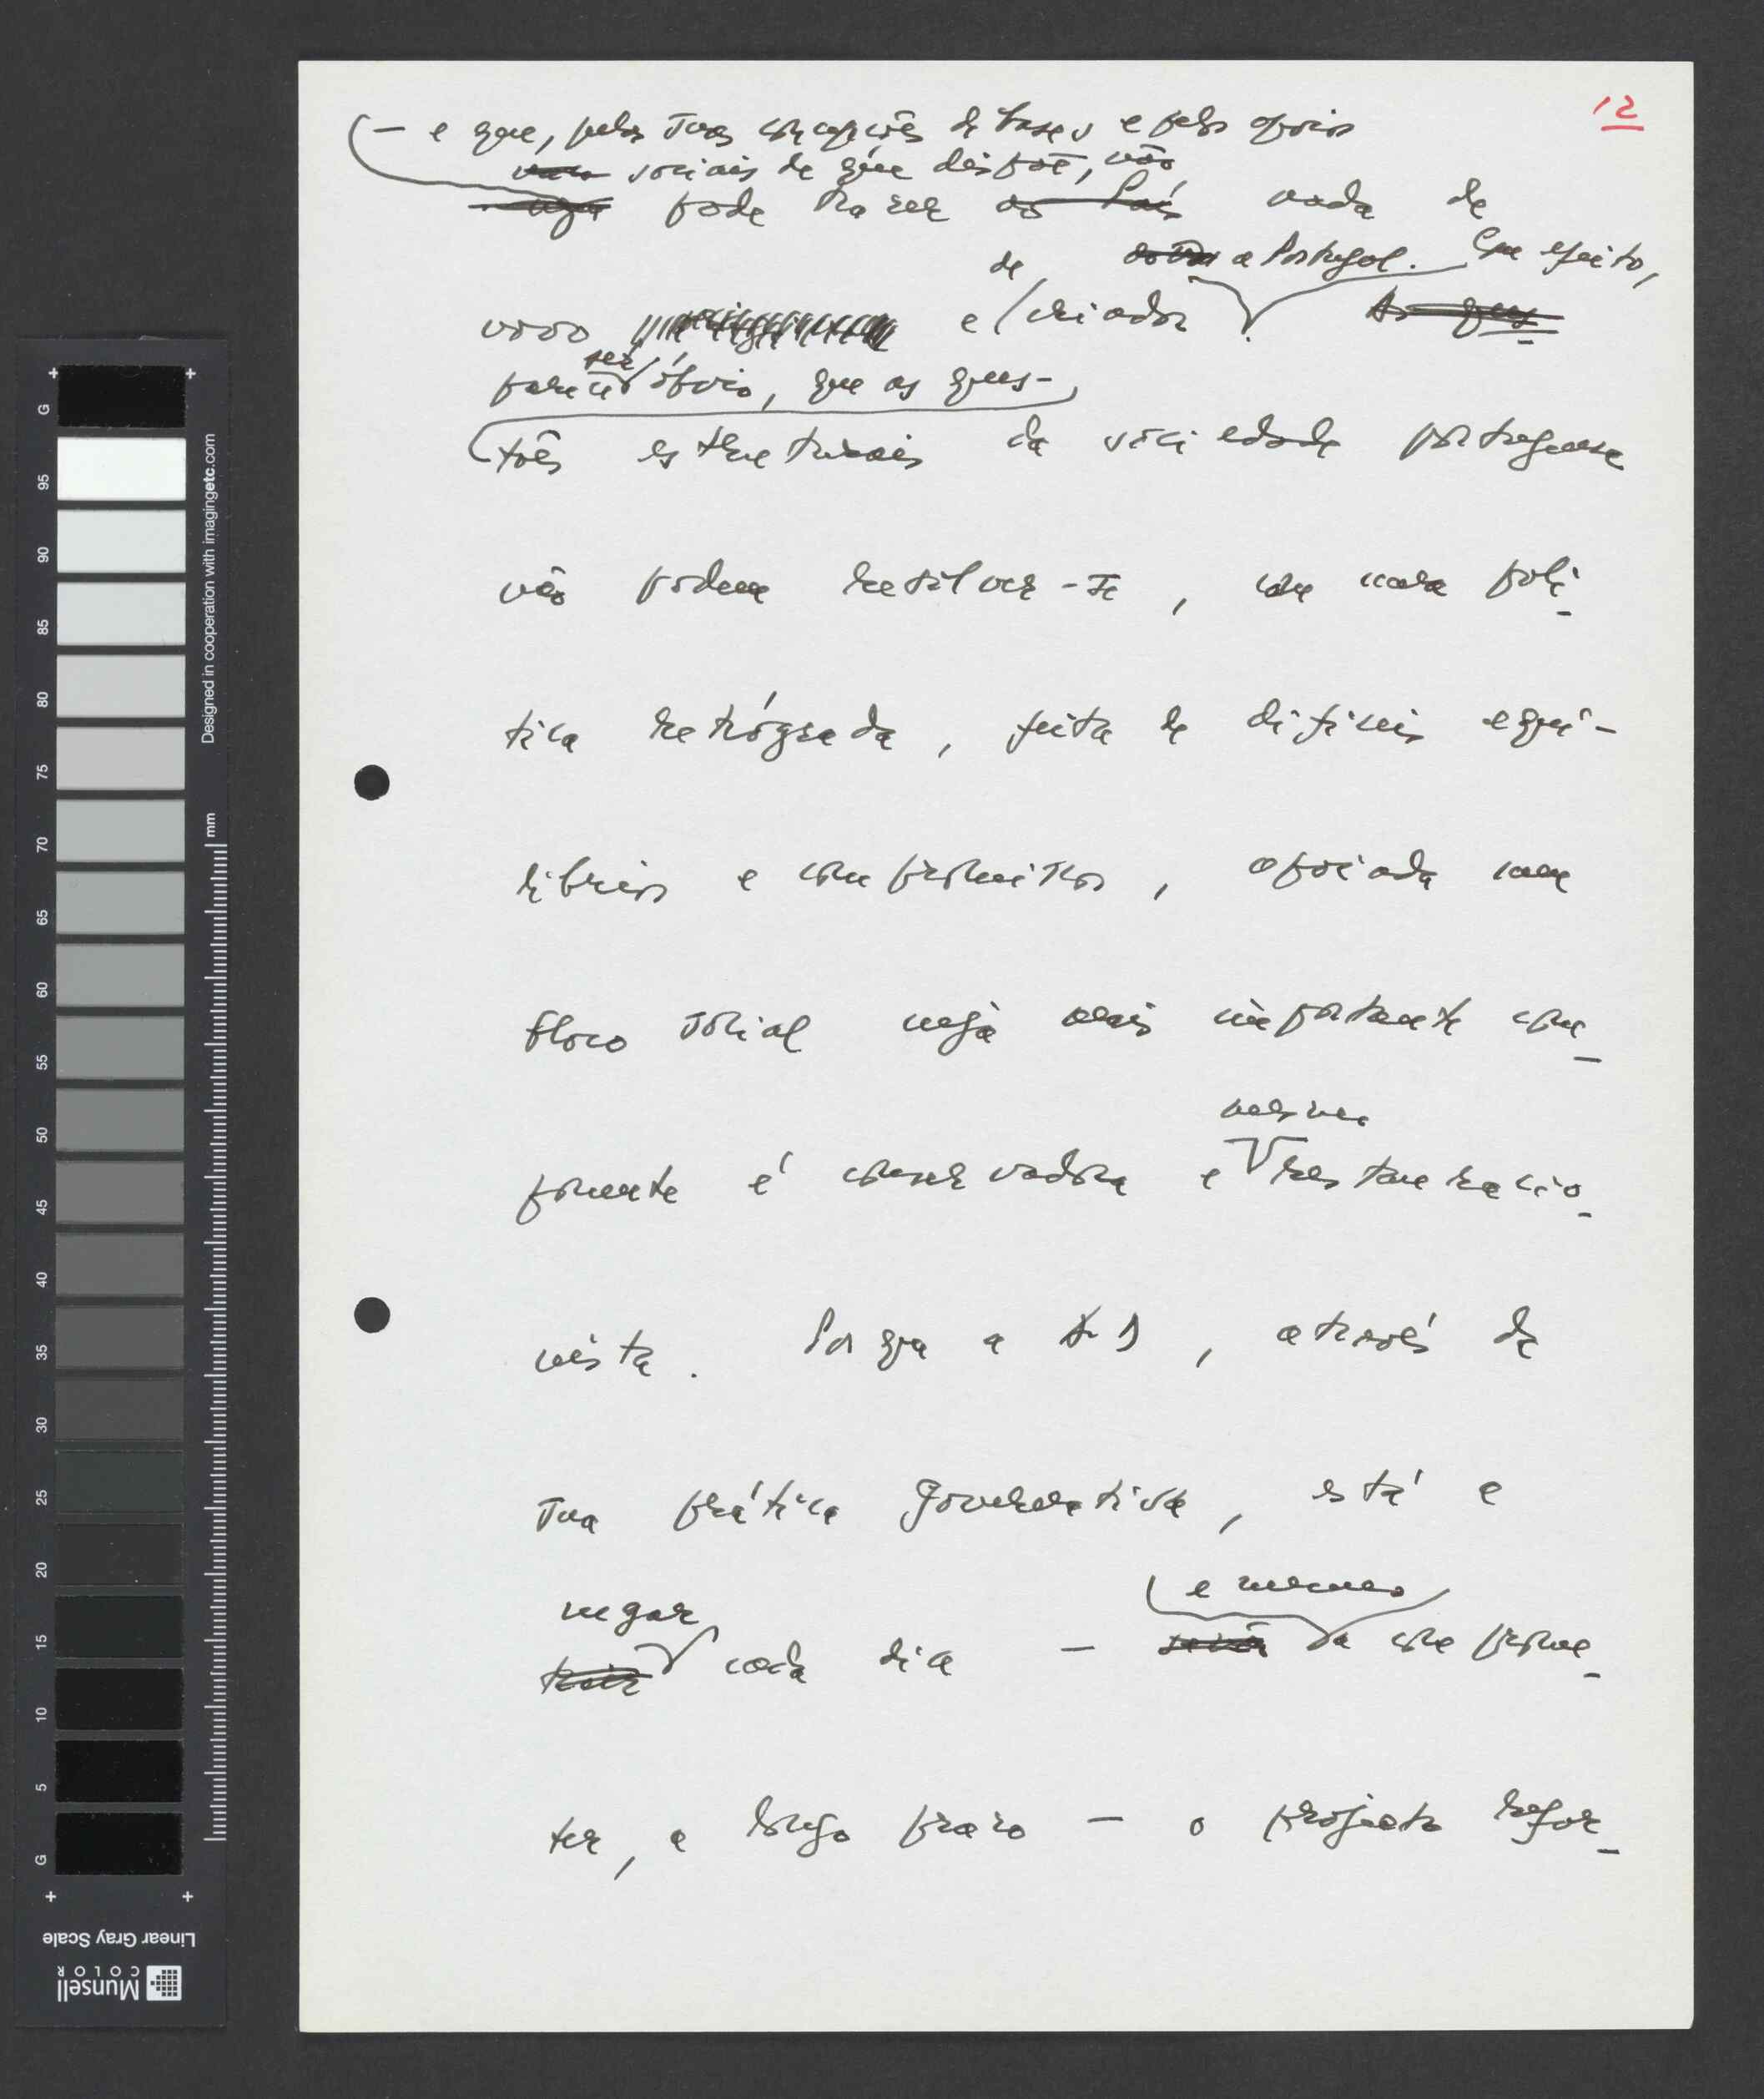 12
— e que, pelas suas concepções de base e pelos apoios
sociais de que dispõe, não
pode trazer ao País nada de
de a Portugal. Com efeito,
novo e criador As ques-
ser
parece óbvio, que as ques-
tões estruturais da sociedade portuguesa
não podem resolver-se, com uma polí-
tica retrógrada, feita de difíceis equi-
líbrios e compromissos, apoiada num
bloco social cuja mais importante com-
mesmo
ponente é conservadora e restauracio-
nista. Porque a AD, através da
sua prática governativa, está a
e mesmo
negar
trair cada dia — senão a comprome-
ter, a longo prazo — o projecto refor-
G
95
90
85
80
75
70
65
60
55
50
45
40
35
30
25
20
15
10
5
G
Designed in cooperation with imagingetc.com
mm
Linear Gray Scale
Munsell
COLOR